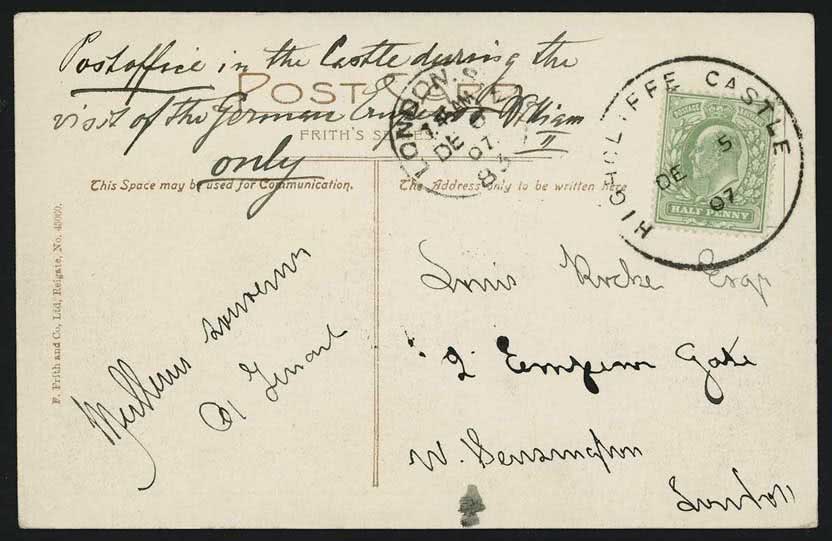 Postoffice in the Castle during the
POST CARD
visit of the German Emperor William
II
FRITH'S SERIES.
only
This Space may be used for Communication.
The Address only to be written here
HIGHCLIFFE CASTLE
DE 5
07
LONDON.
DE
07
83
HALF PENNY
F. Frith and Co., Ltd., Reigate, No.
Meilleurs souvenirs
Louis Roche Esqr
2 Gate
W. Kensington
London